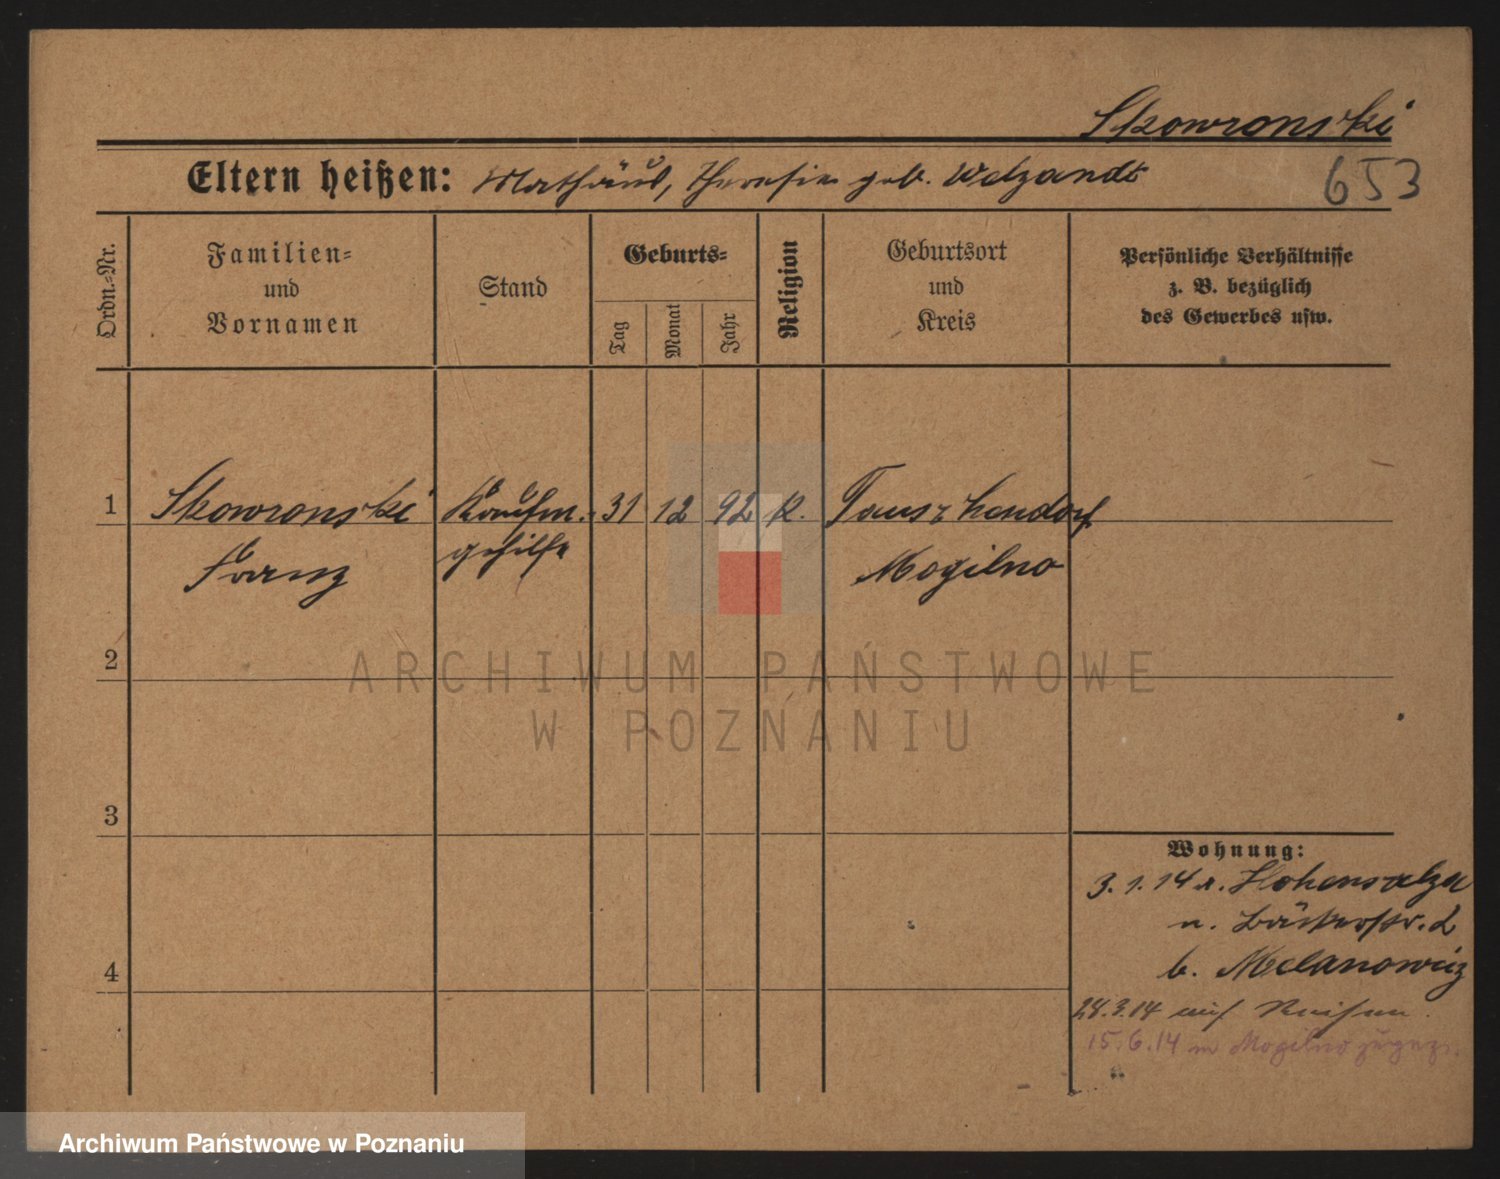 Skowronski
Eltern heißen: Mathäus, Theresia geb. Welzandt
653
Ordn.-Nr.
Familien-
und
Vornamen
Stand
Geburts-
Tag
Monat
Jahr
Religion
Geburtsort
und
Kreis
Persönliche Verhältnisse
z. B. bezüglich
des Gewerbes usw.
1 Skowronski Kaufm.- 31 12 92 K.
gehilfe
Franz
Mogilno
2
3
4
Wohnung:
3.1.14 v. Hohensalza
n. Bäckerstr. 2
b. Melanowicz
24.3.14 auf Reisen
15.6.14 n Mogilno
ARCHIWUM PAŃSTWOWE
W POZNANIU
Archiwum Państwowe w Poznaniu